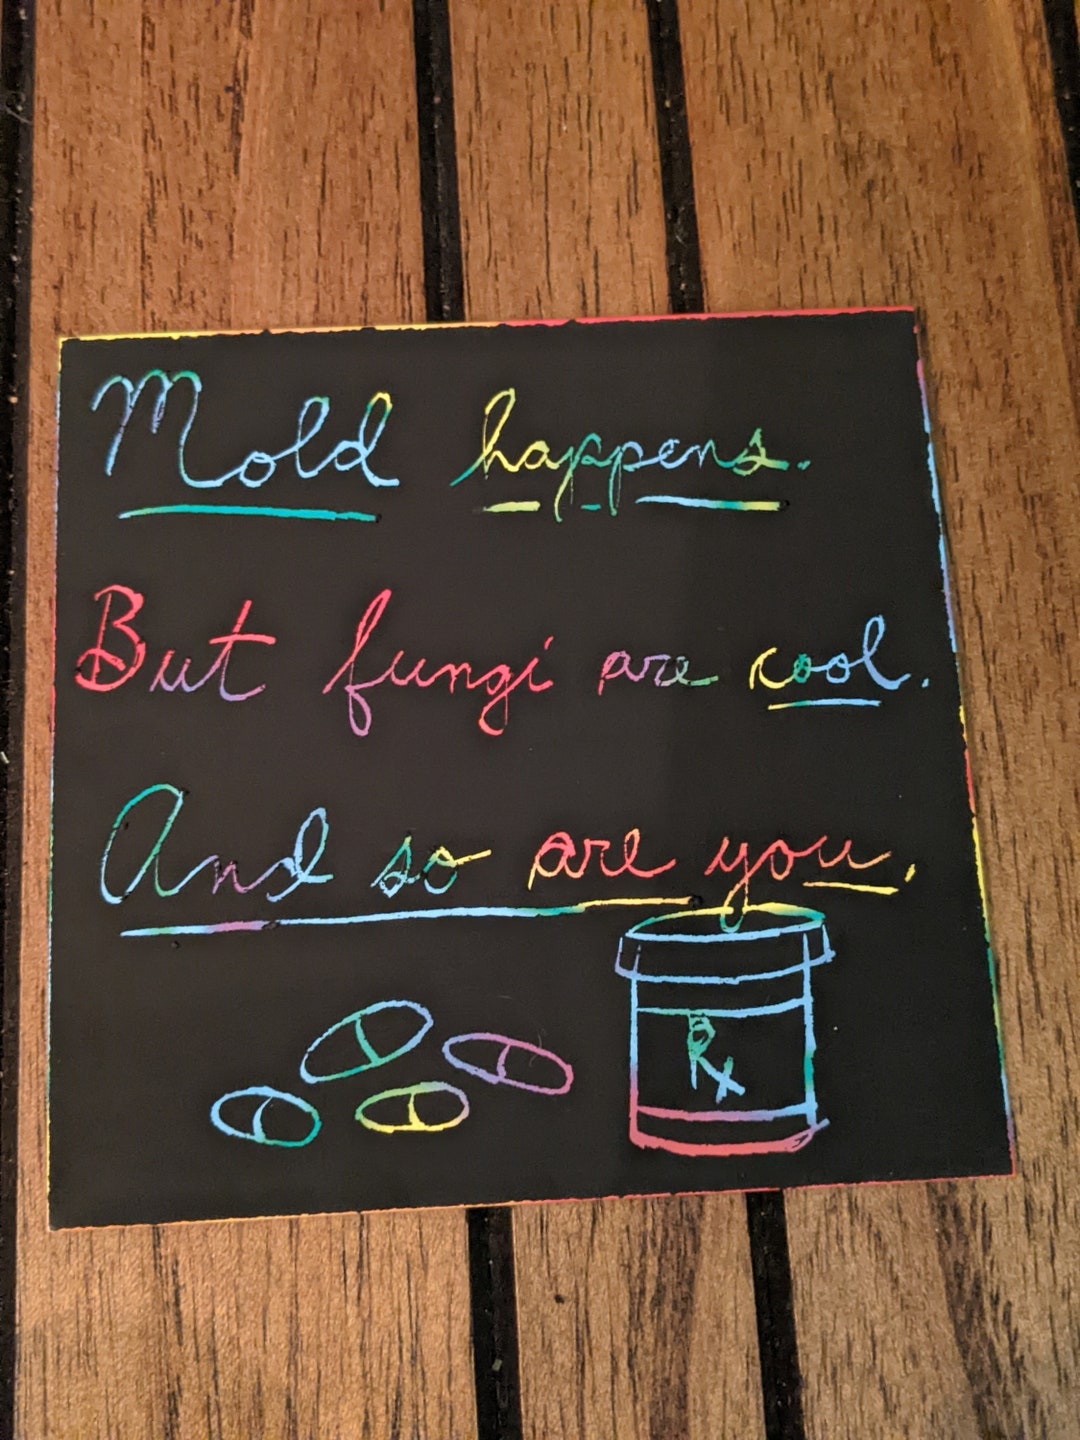 Mold happens.
But fungi are cool.
And so are you.
Rx